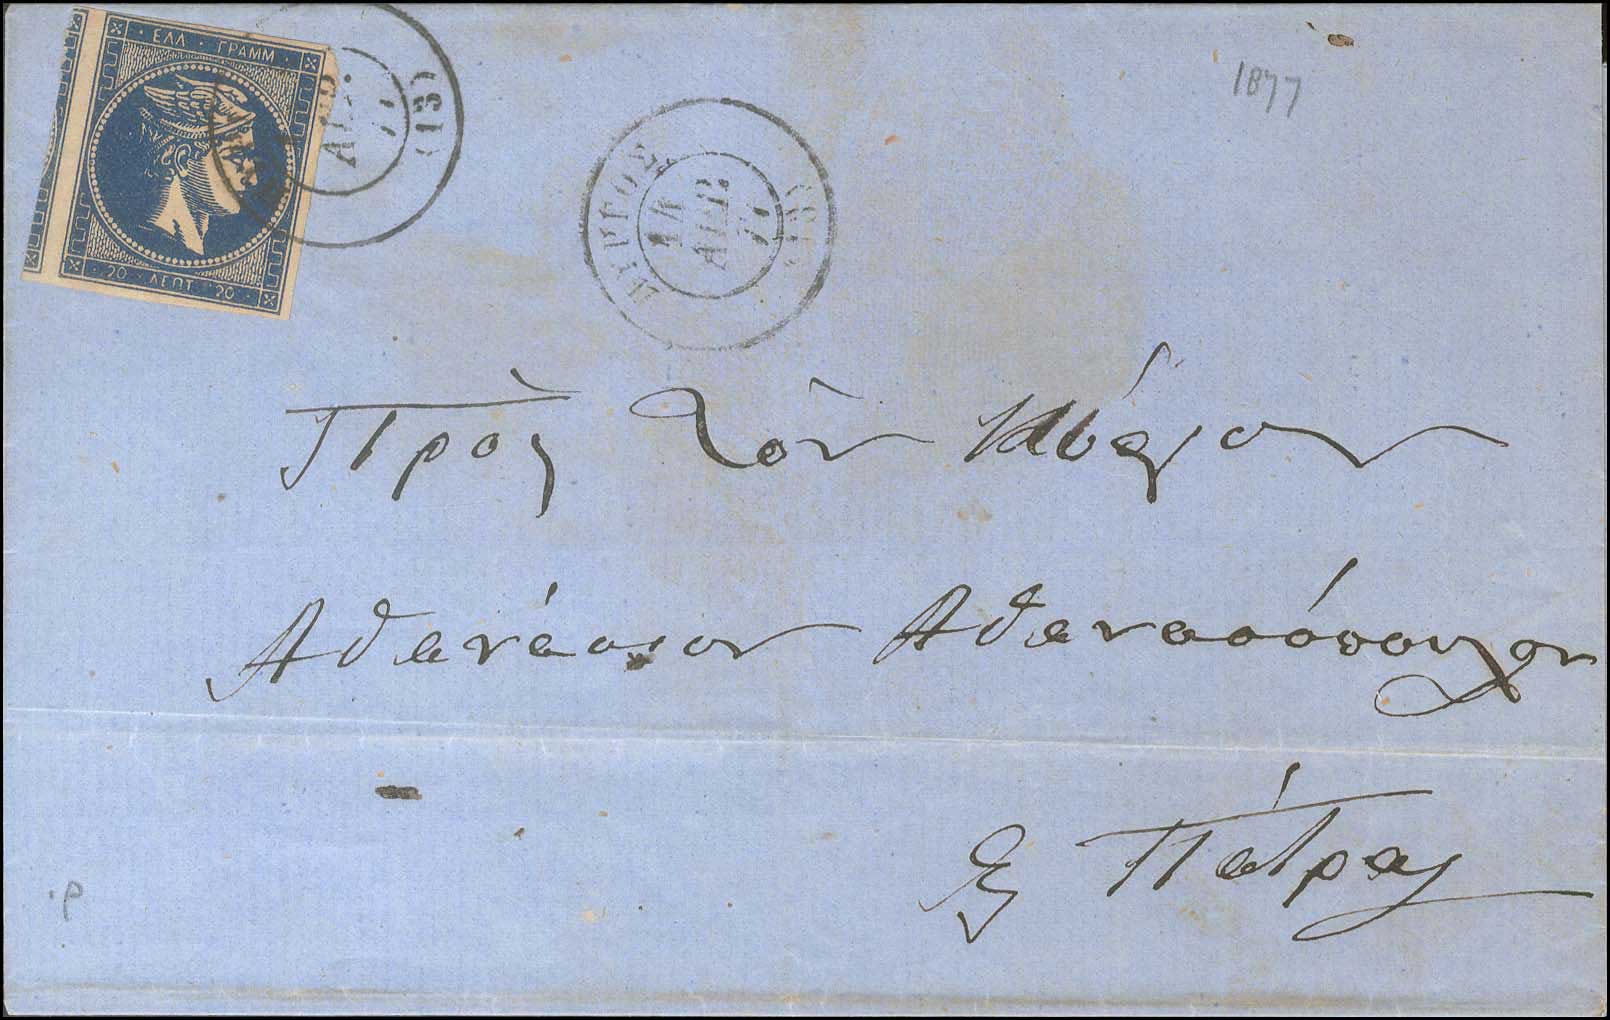 ΕΛΛ · ΓΡΑΜΜ
20 · ΛΕΠΤ · 20
(13)
ΠΥΡΓΟΣ
ΑΠΡ
1877
Πρὸς τὸν Κύριον
Ἀθανάσιον Ἀθανασόπουλον
Πάτρας